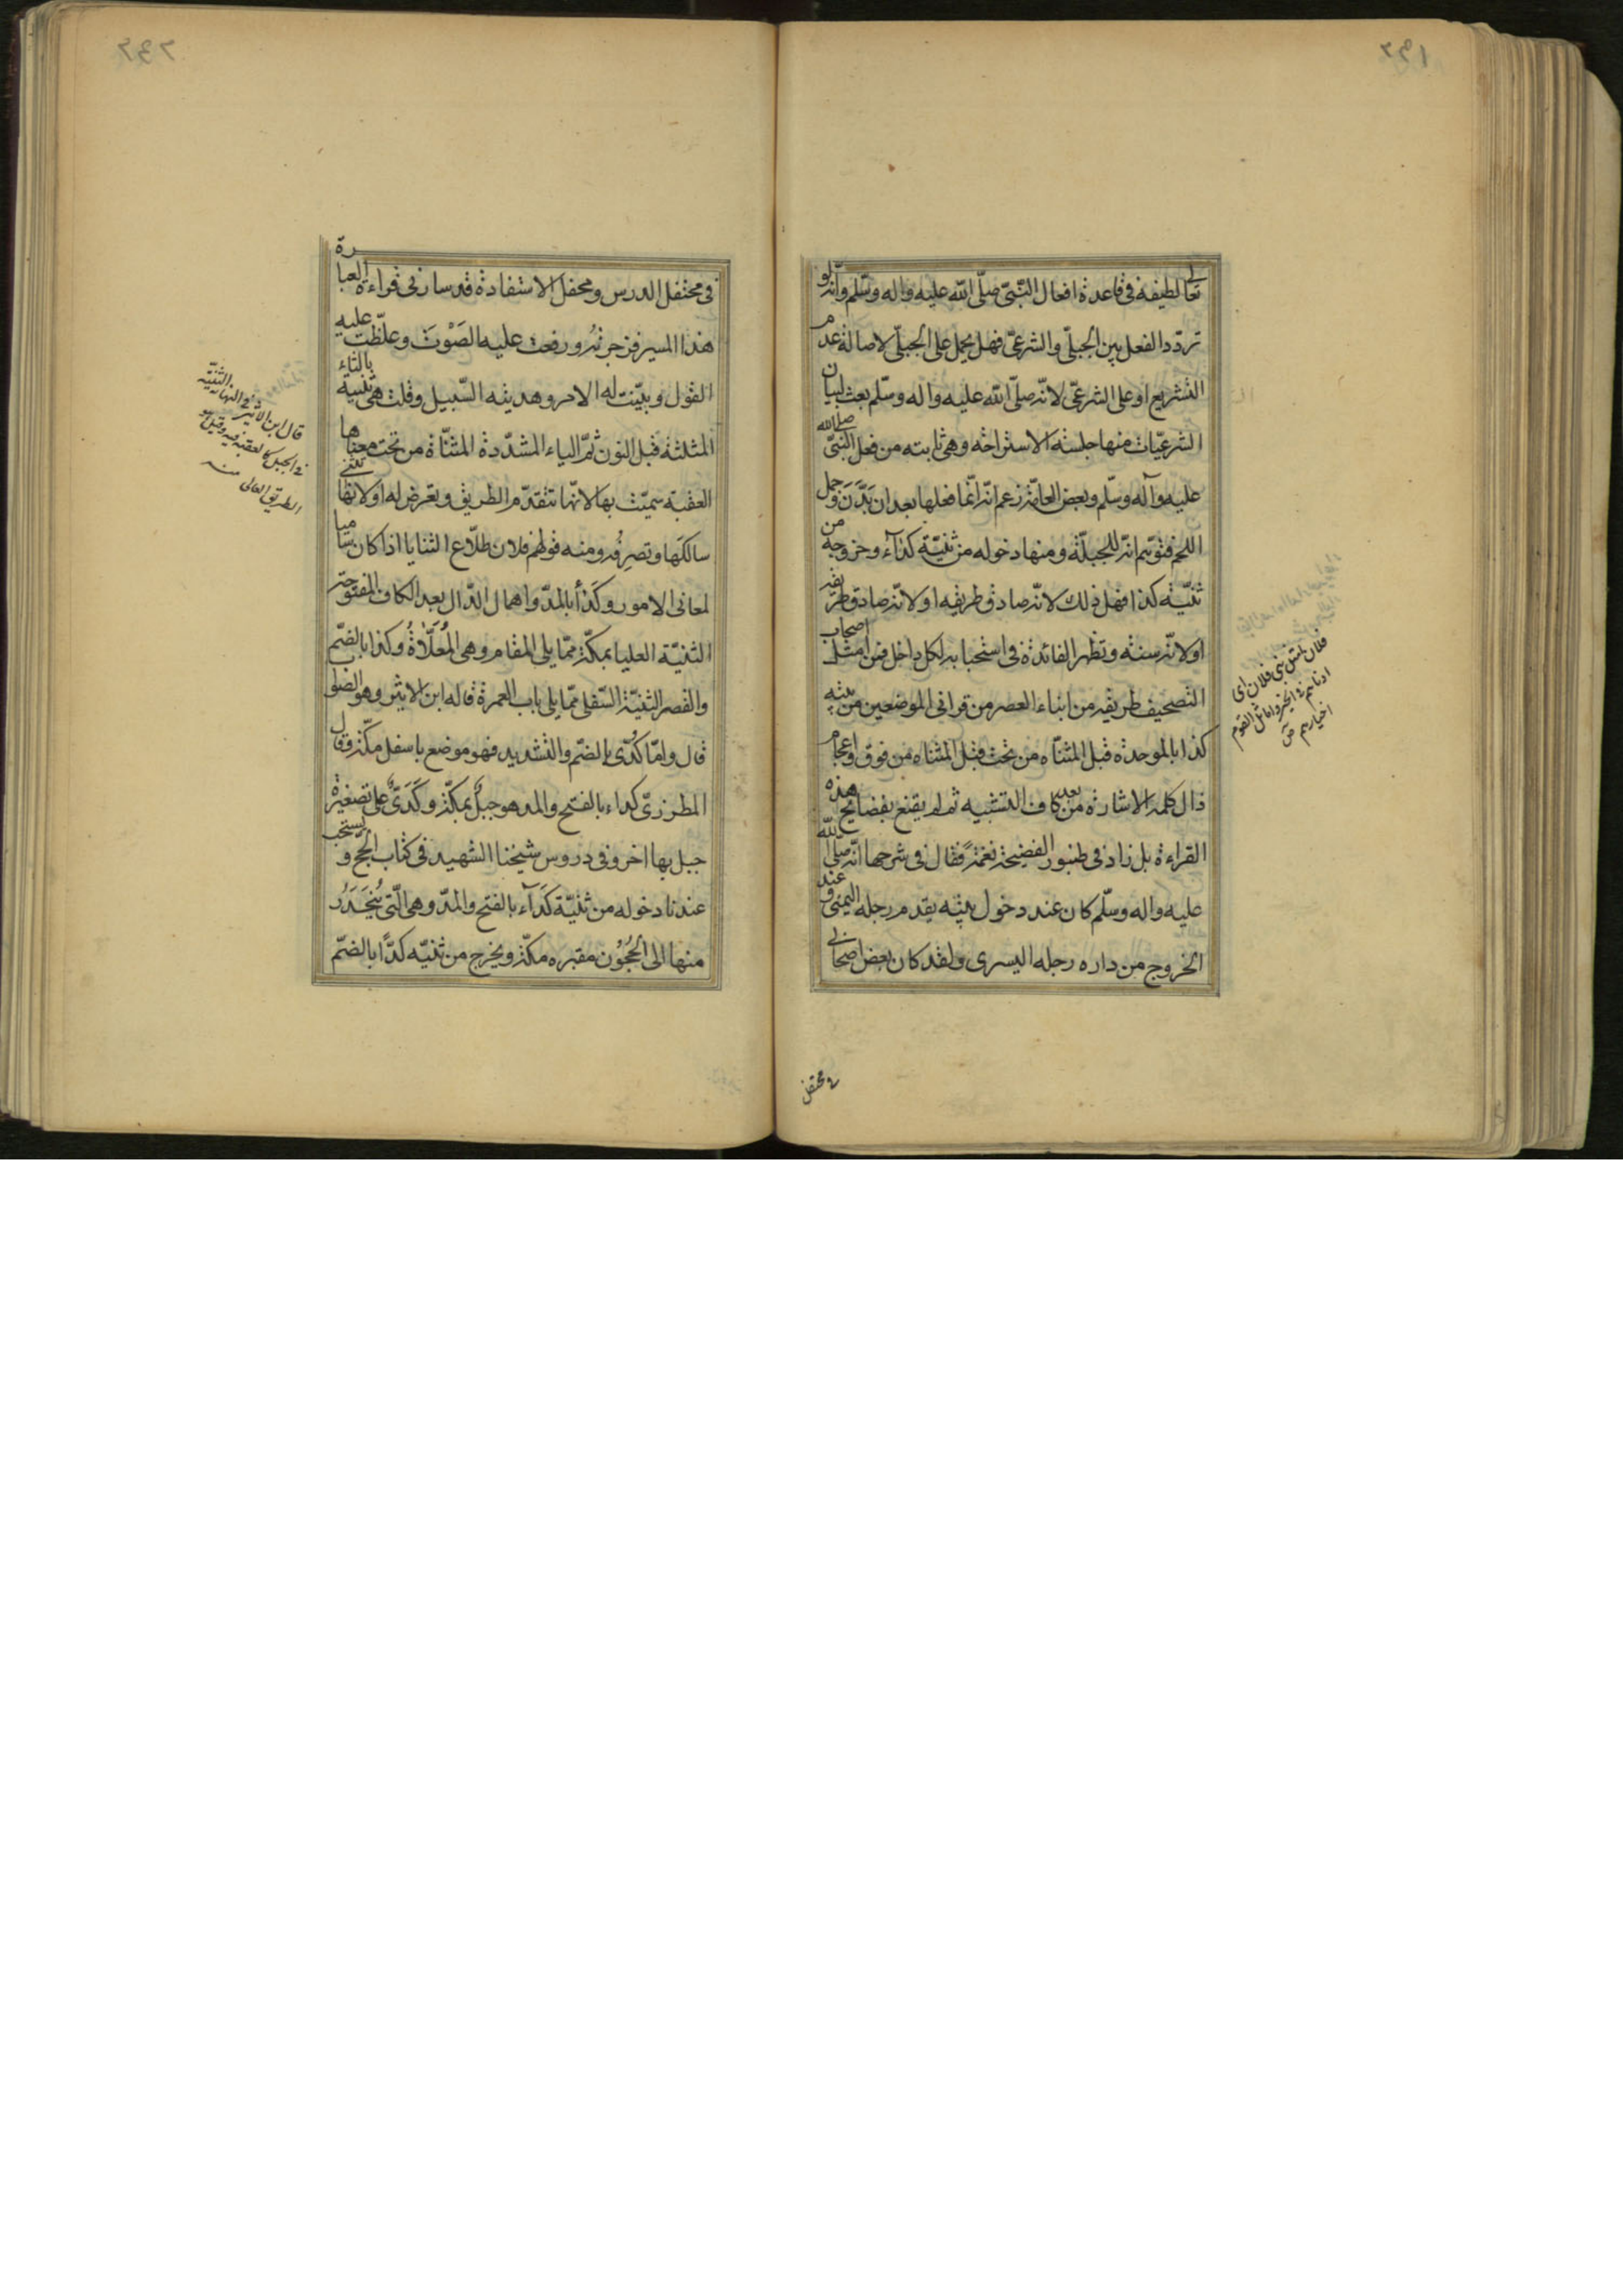 تعالى لطيفة في قاعدة افعال النبيّ صلّى الله عليه واله وسلّم وانّه لو
تردّد الفعل بين الجبلّي والشرعيّ فهل يحمل على الجبلّي لاصالة عدم
التشريع او على الشرعيّ لانّه صلّى الله عليه واله وسلّم بعث لبيان
الشرعيّات منها جلسة الاستراحة وهي ثابته من فعل النبيّ صلى الله
عليه وآله وسلّم وبعض العامّة زعم انّه انّما فعلها بعد ان بَدَّنَ وحمل
اللحم فتوهّم انّه للجبلّة ومنها دخوله من ثنيّة كدآء وخروجه من
ثنيّة كدا فهل ذلك لانّه صادف طريقه او لانّه صادف طريقه
او لانّه سنّة وتظهر الفائدة في استحبابه لكل داخل فمن امثل اصحاب
التصحيف طريقه من ابناء العصر من قرأ في الموضعين من بيته
كذا بالموحدة قبل المثنّاه من تحت قبل المثناه من فوق واعجام
ذال كلمة الاشارة من بعد كاف التشبيه ثم لم يقنع بفضايح هذه
القراءة بل زاد في طنبور الفضيحة نغمة فقال في شرحها انّه صلّى الله
عليه واله وسلّم كان عند دخول بيته يقدم رجله اليمنى و عند
الخروج من داره رجله اليسرى ولقد كان بعض اصحابي
في محتفل
فلان امثل بنى فلان اى
ادناهم في الخير واماثل القوم
اخيارهم
في محتفل الدرس ومحفل الاستفادة قد سار في قراءة العبارة
هذا المسير فزجرته ورفعت عليه الصَوْتَ وغلّظت عليه
القول وبيّنت له الامر وهديته السّبيل وقلت هي ثنيّة بالثاء
المثلثة قبل النون ثمّ الياء المشدّدة المثنّاة من تحت معناها
العقبة سمّيت بها لانّها تتقدّم الطريق وتعرض له او لانّها تثنى
سالكها وتصرفه ومنه قولهم فلان طلّاع الثنايا اذا كان ساميا
لمعالى الامور وكَدَأ بالمدّ واهمال الدّال بعد الكاف المفتوحة
الثنيّة العليا بمكّة ممّا يلى المقام وهي المُعَلّاةُ وكدا بالضّم
والقصر الثنيّة السّفلى ممّا يلى باب العمرة قاله ابن الاثير وهو الصّواب
قال وامّا كُدّى بالضمّ والتشديد فهو موضع باسفل مكّة وقال
المطرزيّ كداء بالفتح والمد هو جبل بمكّة وكُدَىٌّ على تصغيره
جبل بها اخر وفي دروس شيخنا الشهيد في كتاب الحجّ ويستحب
عندنا دخوله من ثنيّة كَدَآء بالفتح والمدّ وهي الّتي يُنْحَدَرُ
منها الى الحُجُوْن مقبره مكّة ويخرج من ثنيّة كُدًا بالضمّ
قال ابن الاثير في النهاية الثنيّة
في الجبل كالعقبة فيه وقيل هو
الطريق العالى منه